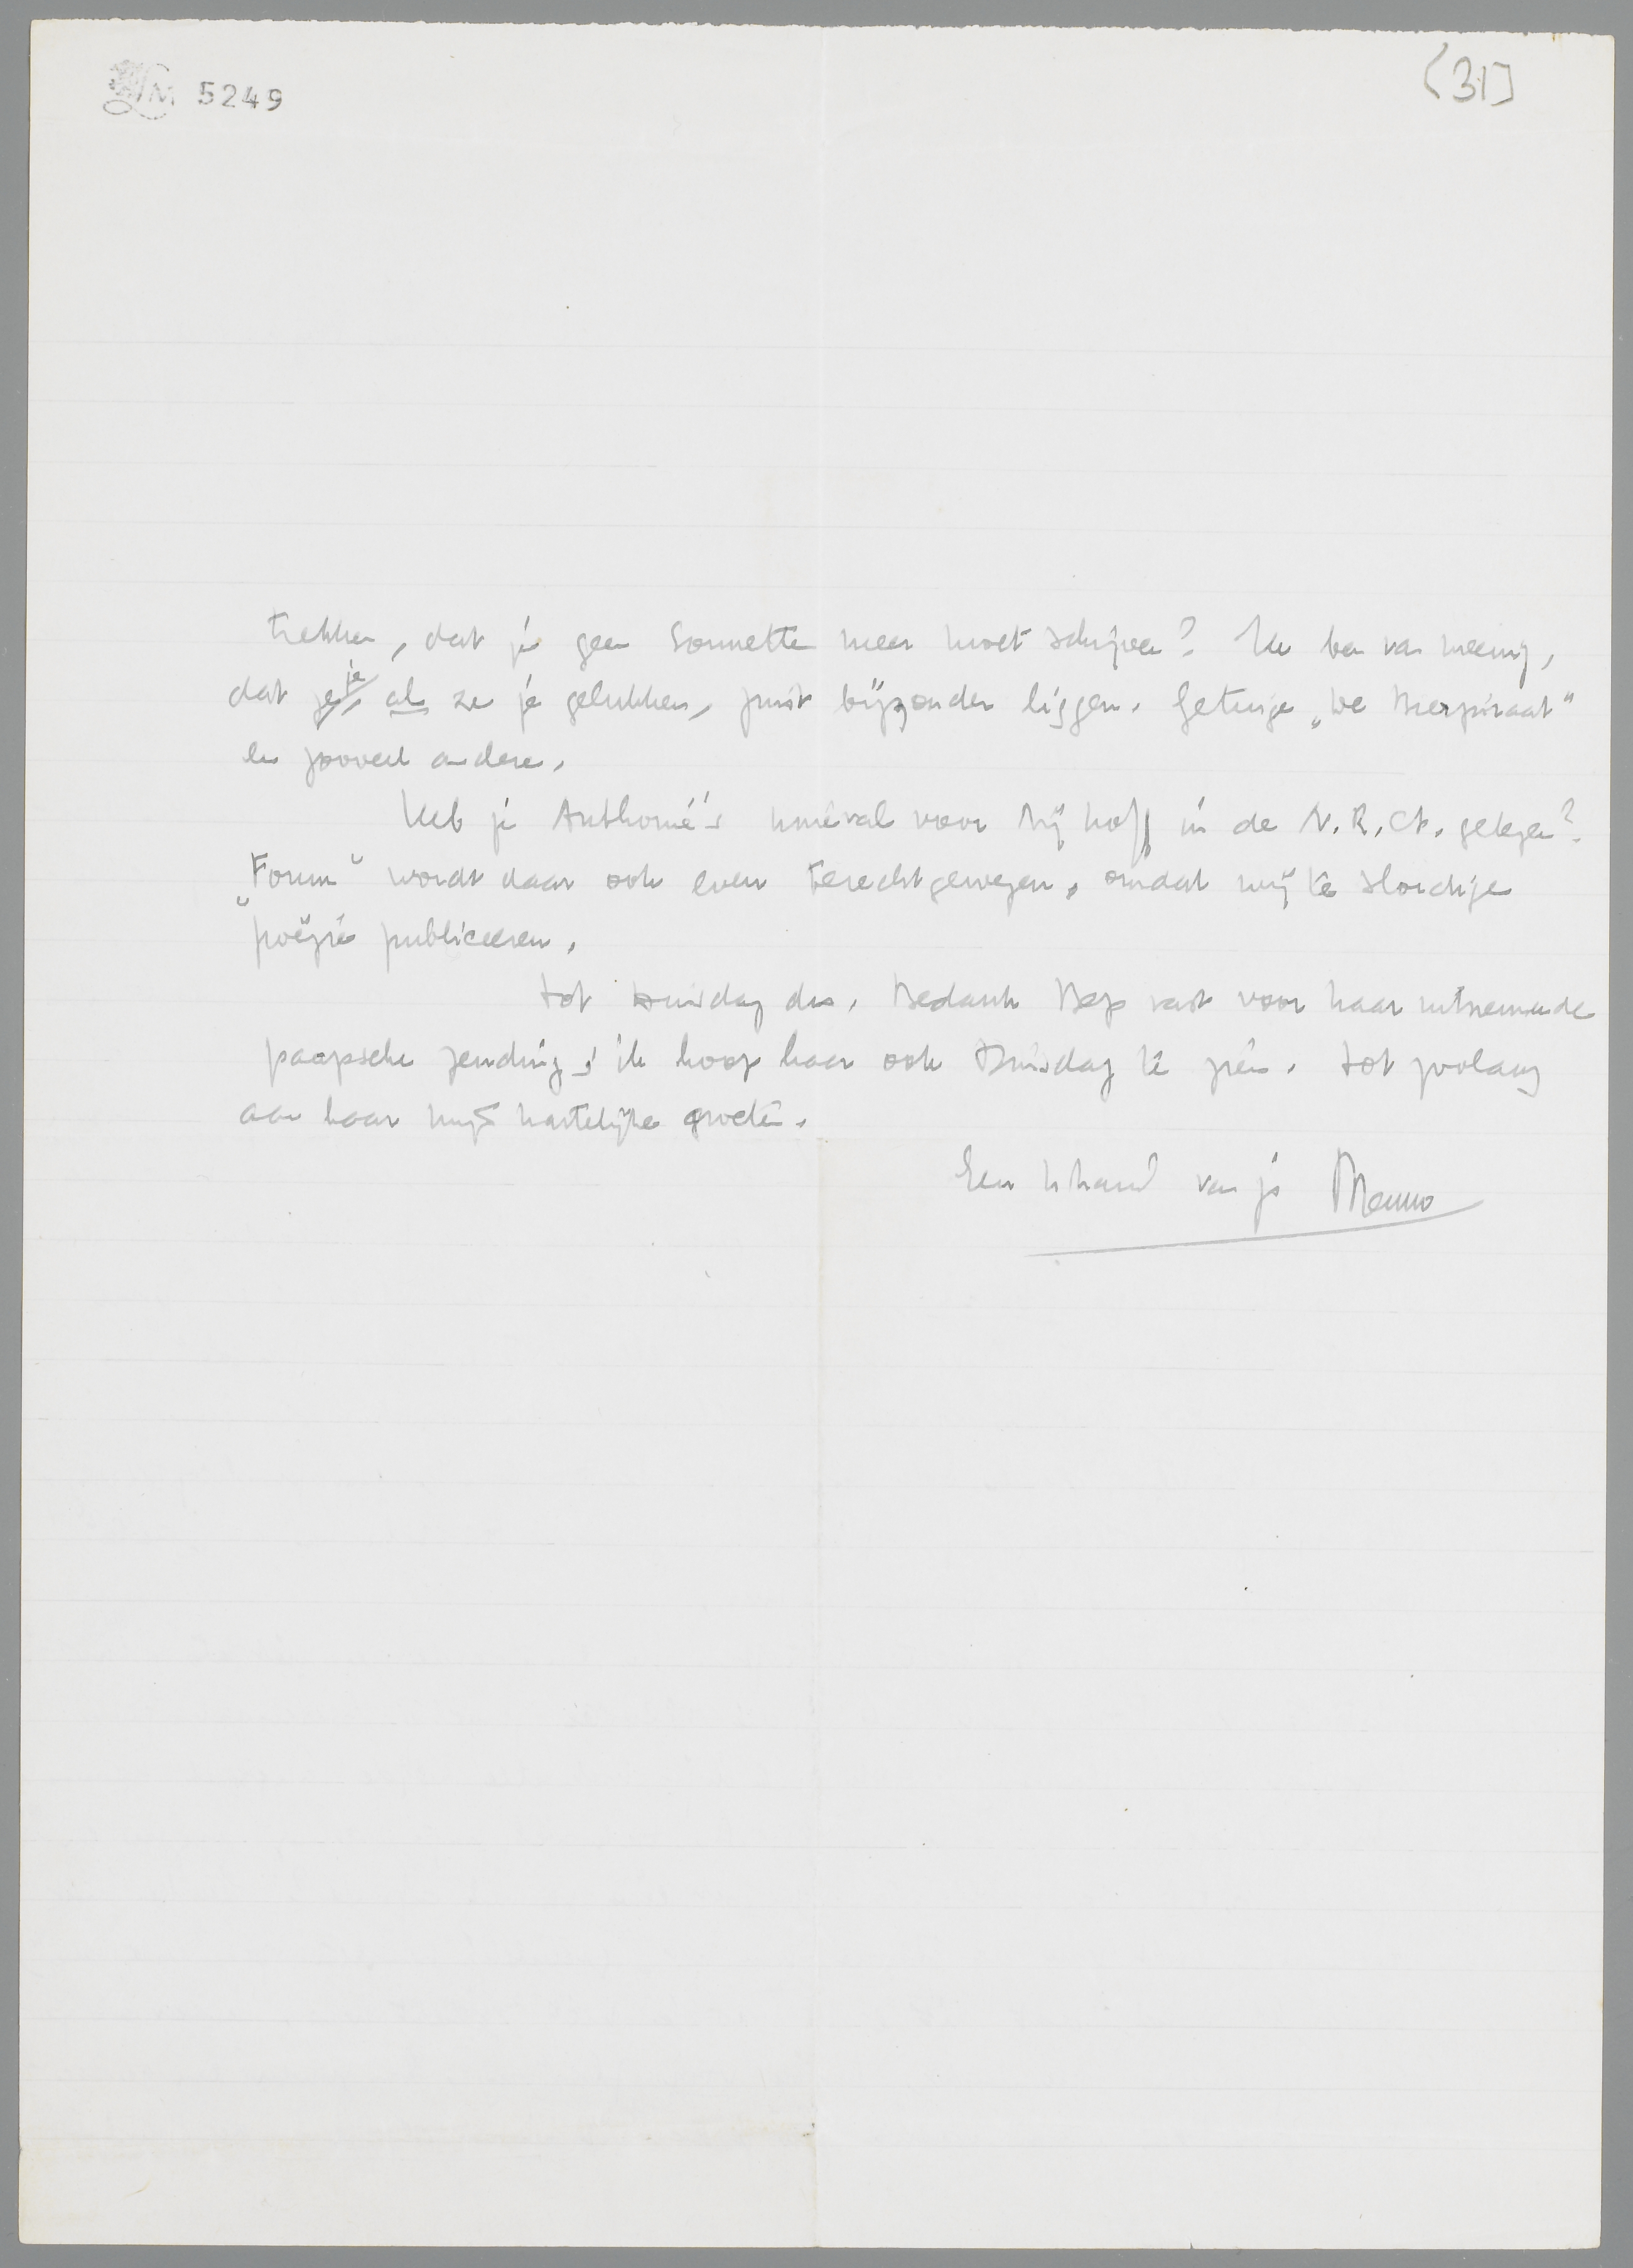 LM 5249
(31]
trekken, dat je geen sonnetten meer moet schrijven? Ik ben van meening,
dat ze je, als ze je gelukken, juist bijzonder liggen. Getuige „De Bierpiraat"
en zooveel andere.
Heb je Anthonie's knieval voor Nijhoff in de N.R.Ct. gelezen?
„Forum" wordt daar ook even terechtgewezen, omdat wij te slordige
poëzie publiceeren.
Tot Dinsdag dus. Bedank Bep vast voor haar uitnemende
paapsche zending; ik hoop haar ook Dinsdag te zien. Tot zoolang
aan haar mijn hartelijke groeten.
Een hand van je Menno